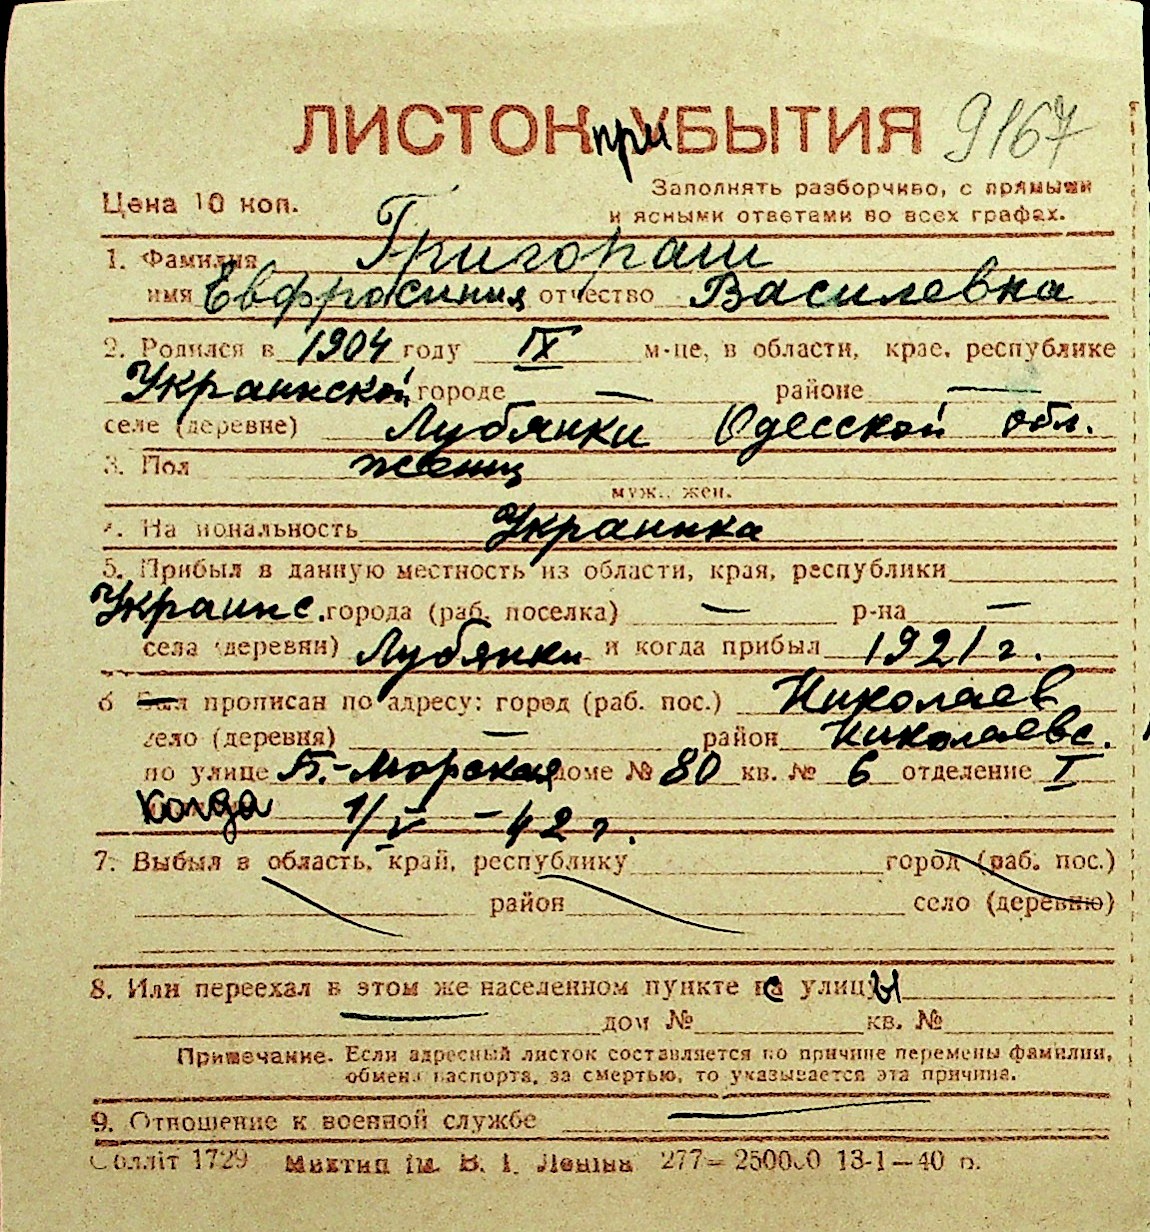 ЛИСТОК прибытия 9167
Цена 10 коп.
Заполнять разборчиво, с прямыми
и ясными ответами во всех графах.
1. Фамилия Григораш
имя Евфросиния отчество Василевна
2. Родился в 1904 году IX м-це, в области, крае, республике
Украинской городе — районе —
селе (деревне) Лубянки Одесской обл.
3. Пол женщ
муж., жен.
4. Национальность Украинка
5. Прибыл в данную местность из области, края, республики
Украинс. города (раб. поселка) — р-на —
села (деревни) Лубянки и когда прибыл 1921 г.
6 Был прописан по адресу: город (раб. пос.) Николаев
село (деревня) — район Николаевс.
по улице Б.-Морская доме № 80 кв. № 6 отделение I
когда 1/V – 42 г.
7. Выбыл в область, край, республику город (раб. пос.)
район село (деревню)
8. Или переехал в этом же населенном пункте с улицы
дом № кв. №
Примечание. Если адресный листок составляется по причине перемены фамилии,
обмена паспорта, за смертью, то указывается эта причина.
9. Отношение к военной службе —
Обллiт 1729 Миктип iм. В. I. Ленiна 277—250000 13-1—40 р.